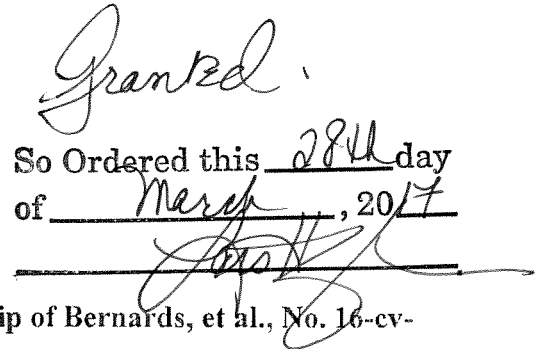 Granted.
So Ordered this 28th day
of March, 2017
ip of Bernards, et al., No. 16-cv-